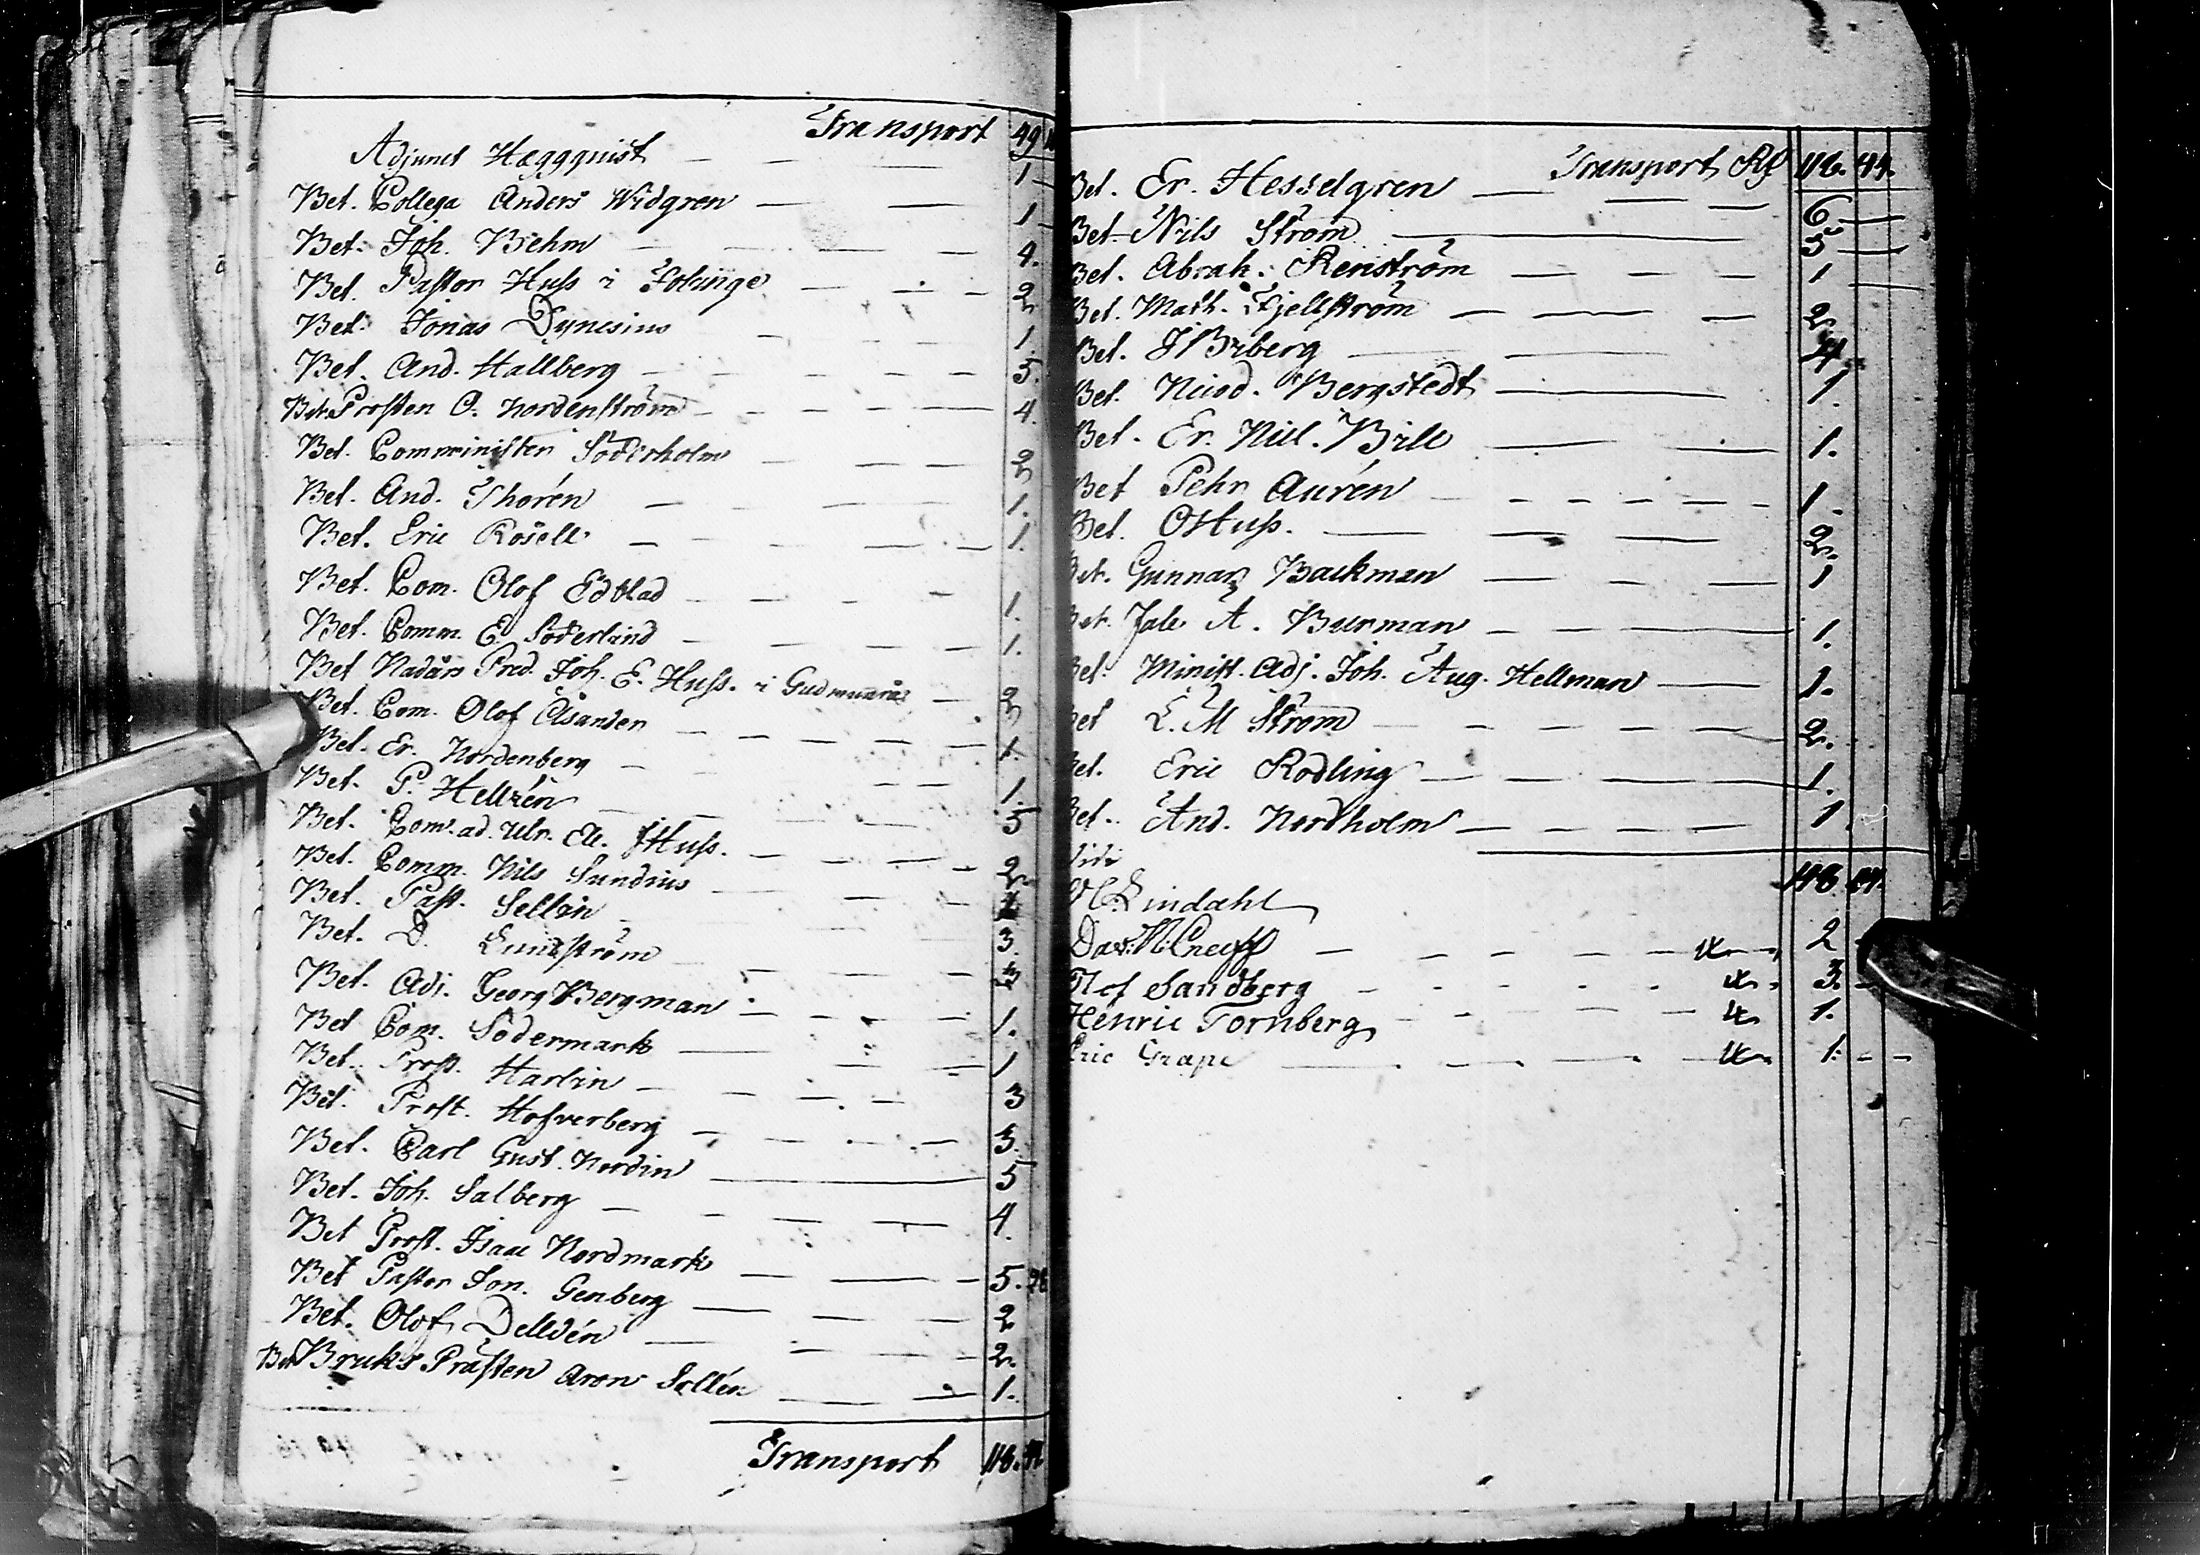 Transport 49
Adjunct Hæggquist — — — 1
Bet. Collega Anders Widgren — — 1
Bet. Joh. Behm — — — 4.
Bet. Pastor Huss i — — — 2
Bet. Jonas Dynesius — — — 1
Bet. And. Hallberg — — — 5.
Bet. Prosten O. Nordenström — — — 4.
Bet. Comminister Söderholm — — — 2
Bet. And. Thorén — — — 1.
Bet. Eric Rosell — — — 1.
Bet. Com. Olof Edblad — — — 1.
Bet. Comm. E. Söderlind — — — 1.
Bet Nådårs Pred. Joh. E. Huss. i Gudmundrå — 2
Bet. Com. Olof Åsander — — — 1.
Bet. Er. Nordenberg — — — 1.
Bet. P. Hellzén — — — 5
Bet. Com. ad. Ulr. El. Huss. — — — 2
Bet. Comm. Nils Sundius — — —
Bet. Past. Sellin — — 3.
Bet. D. Lundström — — —
Bet. Adj. Georg Bergman — — — 1.
Bet Com. Södermark — — — 1
Bet. Prost. Harlin — — — 3
Bet. Prost. Hofverberg — — — 3.
Bet. Carl Gust. Nordin — 5
Bet. Joh. Salberg — — — 4.
Bet Prost. Isaac Nordmark — — — 5. 28
Bet Pastor Jon. Genberg — — — 2
Bet. Olof Delldén — — — 2.
Bet Bruks Prästen Aron Sellén — — 1.
Transport 116. 44
Transport Rd 116. 44.
Bet. Er. Hesselgren — — — 6 —
Bet. Nils Ström — 3 —
Bet. Abrah. Renström — — — 1 —
Bet. Math. Fjellström — — — 2
Bet. J Biberg — —
Bet. Bergstedt — 1.
Bet. Er. Nic. Bill — — 1.
Bet Pehr Aurén — — — 1.
Bet. O Huss. — — — 2.
Bet. Gunnar Backman — — — 1
Bet. Jac. A. Burman — — — 1.
Bet. Minist. Adj. Joh. Aug. Hellman — 1.
Bet L. M Ström — — — 2.
Bet. Eric Rodling — — — 1.
Bet. And. Nordholm — — — 1.
Vidi
Lindahl
Dav. — — — 2
Olof Sandberg — — — 3.
Henric Tornberg — — — 1.
Eric Grape — — — 1. —